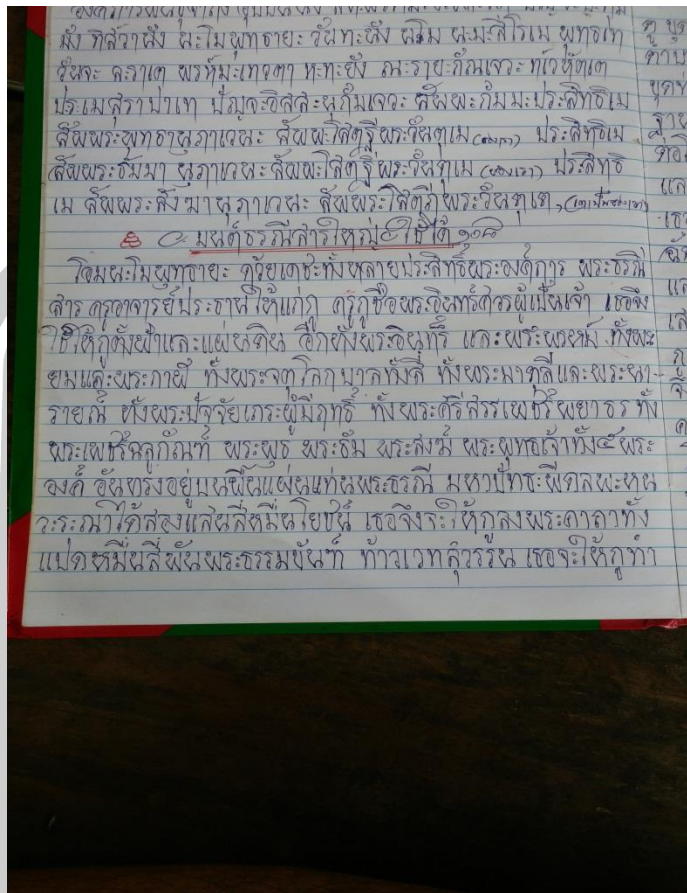 มัง ทิสวานัง นะโมพุทธายะ วันทะนัง นะโม นะมะสิโรเม พุทธเท
วันจะ ละราเต พรหมะเทวตา หะทะยัง ณะรายะกันเจวะ ทเวหัตเต
ปะระเมสุราปาเท ปัญจะอิสสะนุกัมเจวะ สัพพะกัมมะประสิทธิเม
สัพพระพุทธานุภาเวนะ สัพพะโสตถีพระวันตุเม ประสิทธิเม
สัพพระธัมมานุภาเวนะ สัพพะโสตถีพระวันตุเม ประสิทธิ
เม สัพพระสังฆานุภาเวนะ สัพพระโสตถีพระวันตุเต
มนต์ธรณีสารใหญ่ ใช้ได้ ๑๐๘
โอมนะโมพุทธายะ ด้วยเดชะทั้งหลายประสิทธิ์พระองค์การ พระธรณี
สาร ครูอาจารย์ประธานให้แก่กู ครูกูชื่อพระอินทร์ศวรผู้เป็นเจ้า เธอจึง
ใช้ให้กูตั้งฟ้าและแผ่นดิน อีกทั้งพระอินทร์ และพระพรหม ทั้งพระ
ยมและพระกาฬ ทั้งพระจตุโลกบาลทั้งสี่ ทั้งพระมาตุลีและพระนา
รายณ์ ทั้งพระปัจจัยเภระผู้มีฤทธิ์ ทั้งพระศรีสรรเพชร์พยาธร ทั้ง
พระเพชรฉลูกัณฑ์ พระพุธ พระธัม พระสงฆ์ พระพุทธเจ้าทั้ง๕พระ
องค์ อันทรงอยู่บนพื้นแผ่นแท่นพระธรณี มหาปัทธะพีดลพะหน
วะระณาได้สองแสนสี่หมื่นโยชน์ เธอจึงจะให้กูลงพระคาถาทั้ง
แปดหมื่นสี่พันพระธรรมขันท์ ท้าวเวทสุวรรณ เธอจะให้กูทำ